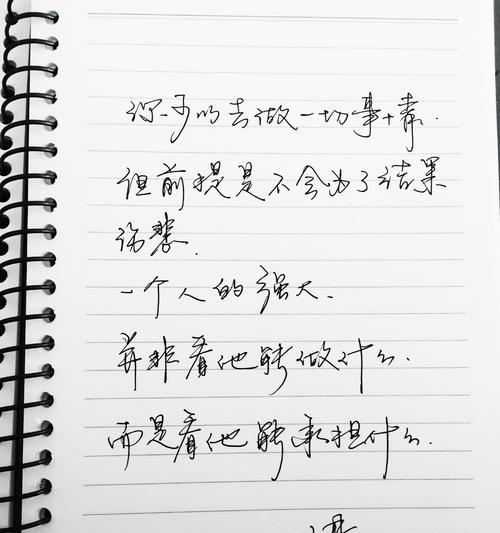 你可以去做一切事情.
但前提是不会为了结果
伤悲.
一个人的强大.
并非看他能做什么.
而是看他能承担什么.